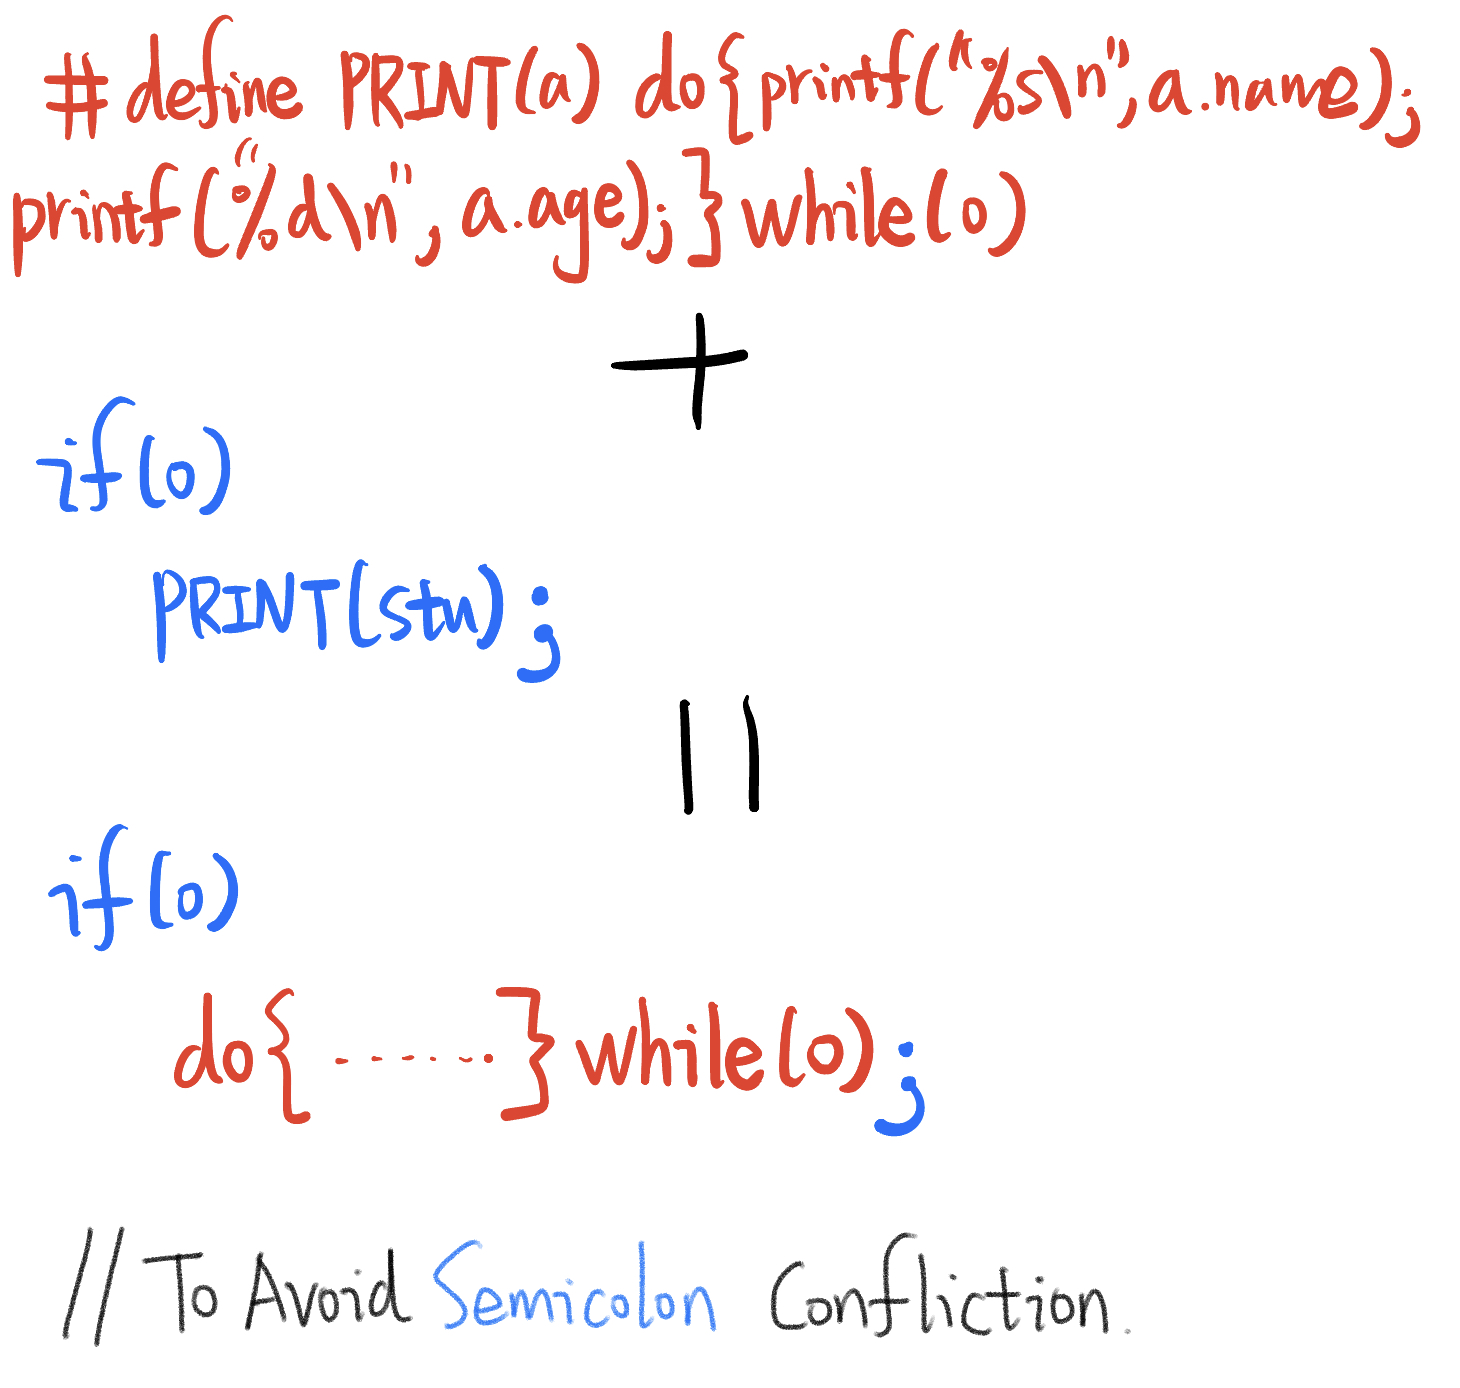 #define PRINT(a) do{printf("%s\n",a.name);
printf("%d\n", a.age);}while(0)
+
if(0)
PRINT(stu);
||
if(0)
do{.......}while(0);
// To Avoid Semicolon Confliction.